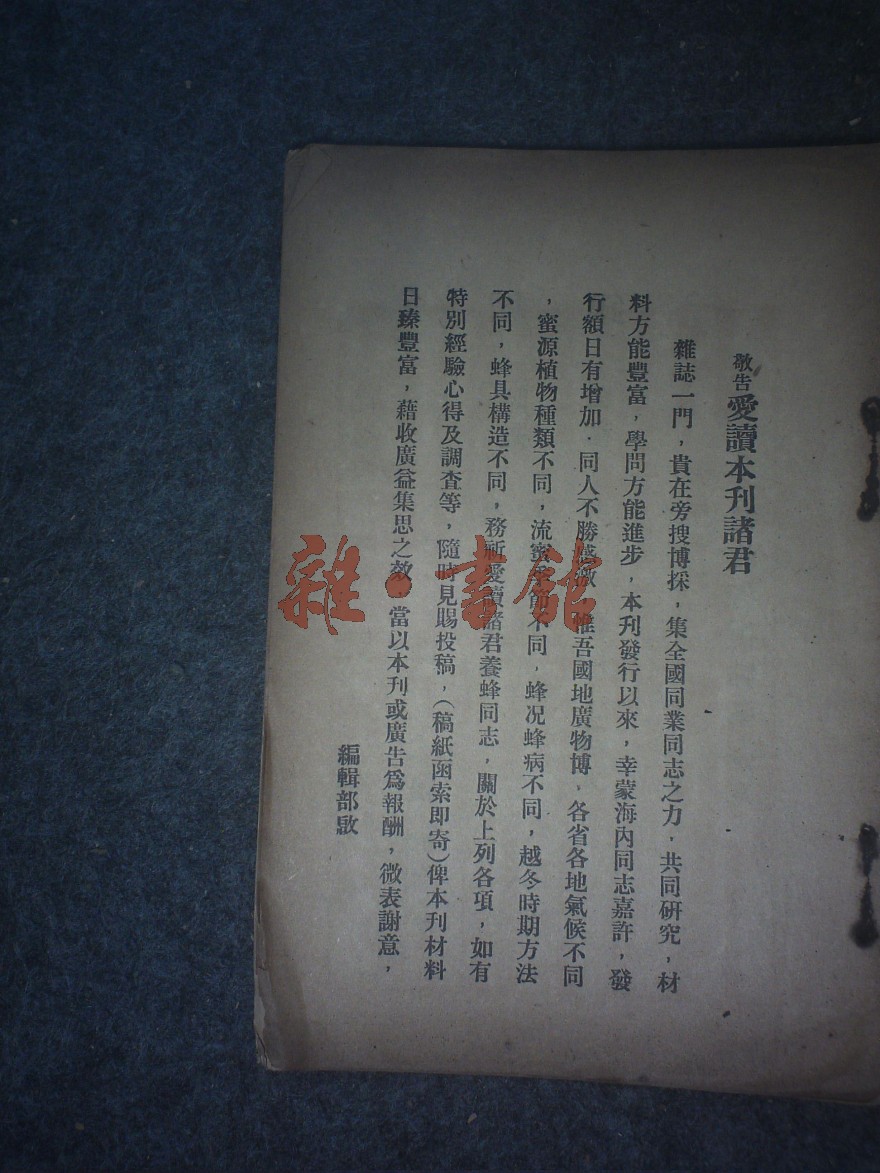 敬告愛讀本刊諸君
雜誌一門，貴在旁搜博採，集全國同業同志之力，共同研究，材
料方能豐富，學問方能進步，本刊發行以來，幸蒙海內同志嘉許，發
行額日有增加．同人不勝感激　惟吾國地廣物博，各省各地氣候不同
，蜜源植物種類不同，流蜜季節不同，蜂况蜂病不同，越冬時期方法
不同，蜂具構造不同，務祈愛讀諸君養蜂同志，關於上列各項，如有
特別經驗心得及調查等，隨時見賜投稿，（稿紙函索即寄）俾本刊材料
日臻豐富，藉收廣益集思之效　當以本刊或廣告爲報酬，微表謝意，
編輯部啟
雜·書館